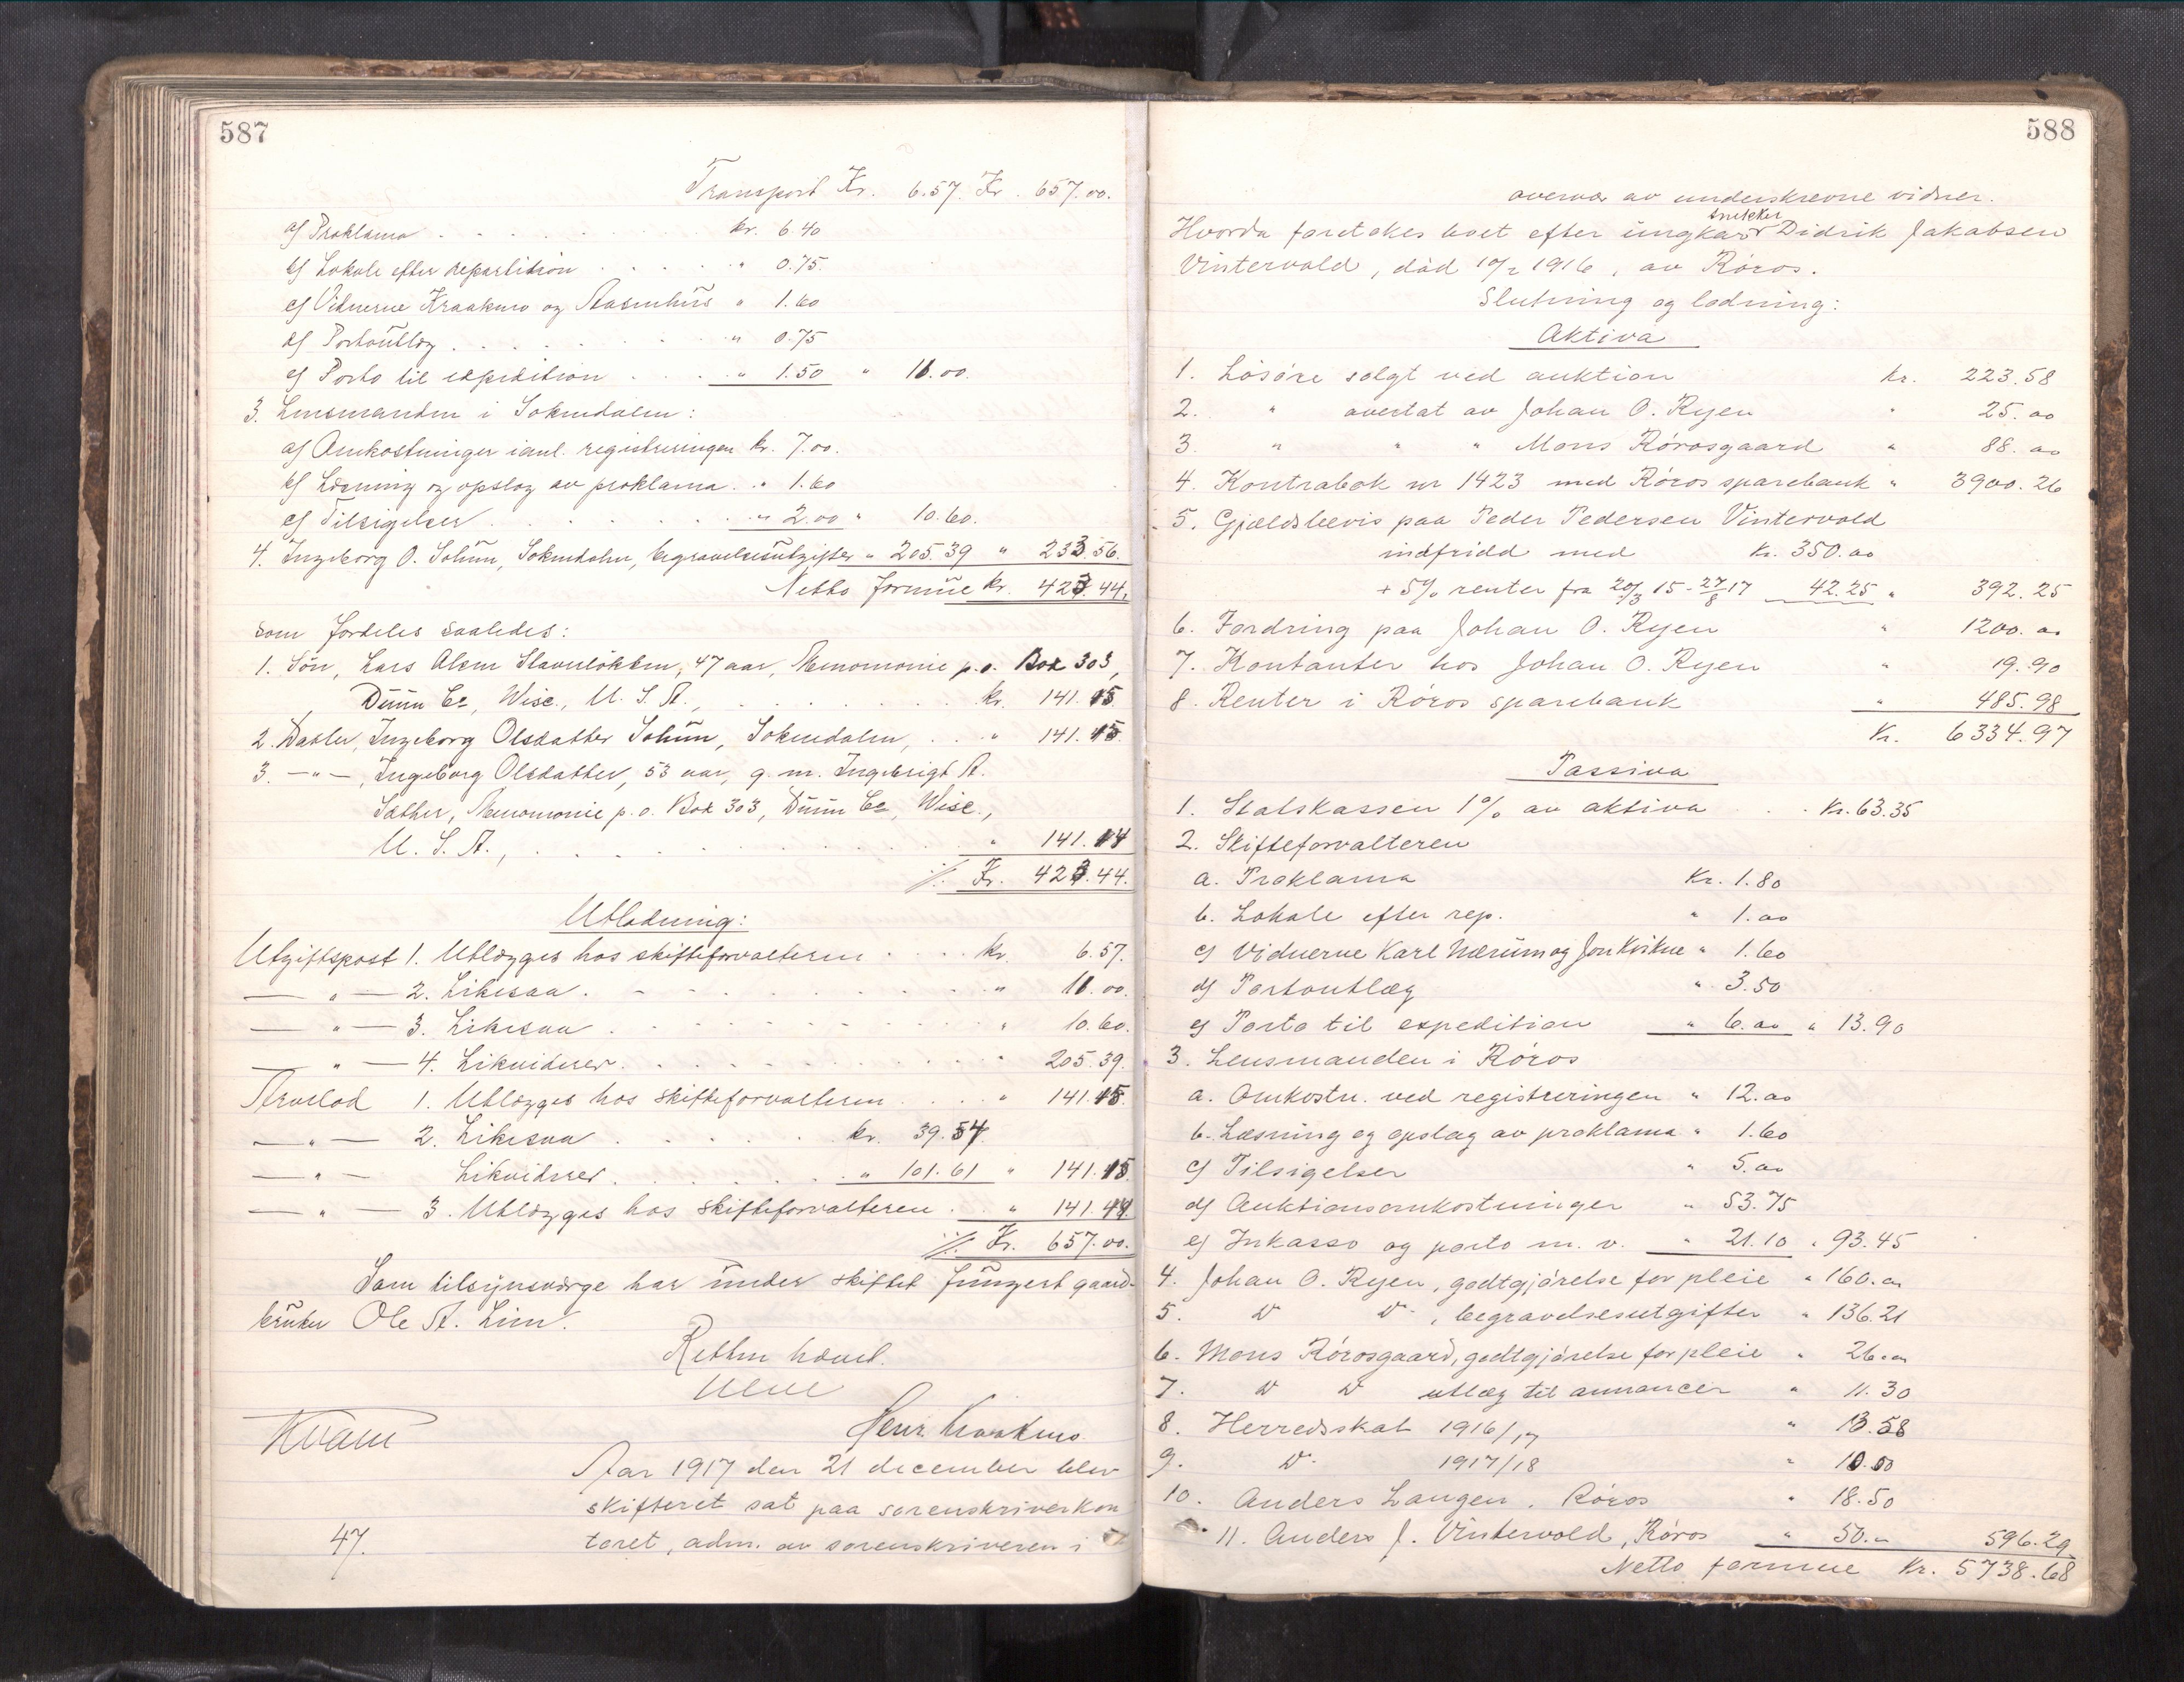 587
Transport Kr. 6.57. Kr. 657.00.
a) Proklama . . . kr. 6.40
b) Lokale efter repartition . . . " 0.75.
c) Vidnerne Kraakmo og Aasenhus " 1.60
d) Portoutlæg . . . " 0.75
e) Porto til expedition . . . " 1.50 " 11.00.
3. Lensmanden i Soknedalen:
a) Omkostninger i anl. registreringen kr. 7.00.
b) Læsning og opslag av proklama . " 1.60
c) Tilsigelser . . . " 2.00 " 10.60.
4. Ingeborg O. Solum, Soknedalen, begravelsesutgifter " 205.39 " 233.56.
Netto formue kr. 423.44.
som fordeles saaledes:
1. Søn, Lars Olsen Slaverløkken, 47 aar, Menomonie p.o. Box 303,
Dunn Co, Wisc., U. S. A., . . . kr. 141.15.
2. Datter, Ingeborg Olsdatter Solum, Soknedalen, . . " 141.15.
3. —"—, Ingeborg Olsdatter, 53 aar, g. m. Ingebrigt A.
Sæther, Menomonie p. o. Box 303, Dunn Co, Wisc.,
U. S. A., . . . " 141.14
./. Kr. 423.44.
Utlodning:
Utgiftspost 1. Utlægges hos skifteforvalteren . . . kr. 6.57.
— " — 2. Likesaa . . . " 11.00.
— " — 3. Likesaa . . . " 10.60.
— " — 4. Likviderer . . . " 205.39.
Arvelod 1. Utlægges hos skifteforvalteren . . . " 141.15.
— " — 2. Likesaa . . . kr. 39.54.
— " — Likviderer . . . " 101.61 " 141.15
— " — 3. Utlægges hos skifteforvalteren . . " 141.14.
./. Kr. 657.00.
Som tilsynsværge har under skiftet fungert gaard-
bruker Ole A. Lien.
Retten hævet.
Kvam
Henr. Kraakmo
Aar 1917 den 21 december blev
skifteret sat paa sorenskriverkon
47. toret, adm. av sorenskriveren i
588
overvær av underskrevne vidner.
snekker
Hvorda foretokes boet efter ungkar Didrik Jakobsen
Vintervold, død 10/2 1916, av Røros.
Slutning og lodning:
Aktiva
1. Løsøre solgt ved auktion Kr. 223.58
2. " overtat av Johan O. Ryen " 25.00
3. " " " Mons Rørosgaard " 88.00
4. Kontrabok nr 1423 med Røros sparebank " 3900.26
5. Gjældsbevis paa Peder Pedersen Vintervold
indfridd med Kr. 350.00
+ 5% renter fra 20/3 15 - 27/8 17 42.25 " 392.25
6. Fordring paa Johan O. Ryen " 1200.00
7. Kontanter hos Johan O. Ryen " 19.90
8. Renter i Røros sparebank " 485.98
Kr. 6334.97
Passiva
1. Statskassen 1% av aktiva . . Kr. 63.35
2. Skifteforvalteren
a. Proklama Kr. 1.80
b. Lokale efter rep. " 1.00
c) Vidnerne Karl Nærum og Jon Kvikne " 1.60
d) Portoutlæg " 3.50
e) Porto til expedition " 6.00 " 13.90
3. Lensmanden i Røros
a. Omkostn. ved registreringen " 12.00
b. Læsning og opslag av proklama " 1.60
c) Tilsigelser " 5.00
d) Auktionsomkostninger " 53.75
e) Inkasso og porto m. v. " 21.10 " 93.45
4. Johan O. Ryen, godtgjørelse for pleie " 160.00
5. D D , begravelsesutgifter " 136.21
6. Mons Rørosgaard, godtgjørelse for pleie " 26.00
7. D D utlæg til annoncer " 11.30
8. Herredsskat 1916/17 " 13.58
9. D 1917/18 " 10.00
10. Anders Langen, Røros " 18.50
11. Anders J. Vintervold, Røros " 50.00 596.29
Netto formue Kr. 5738.68